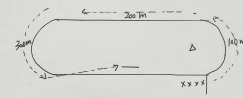 200m
300m
100m
x x x x